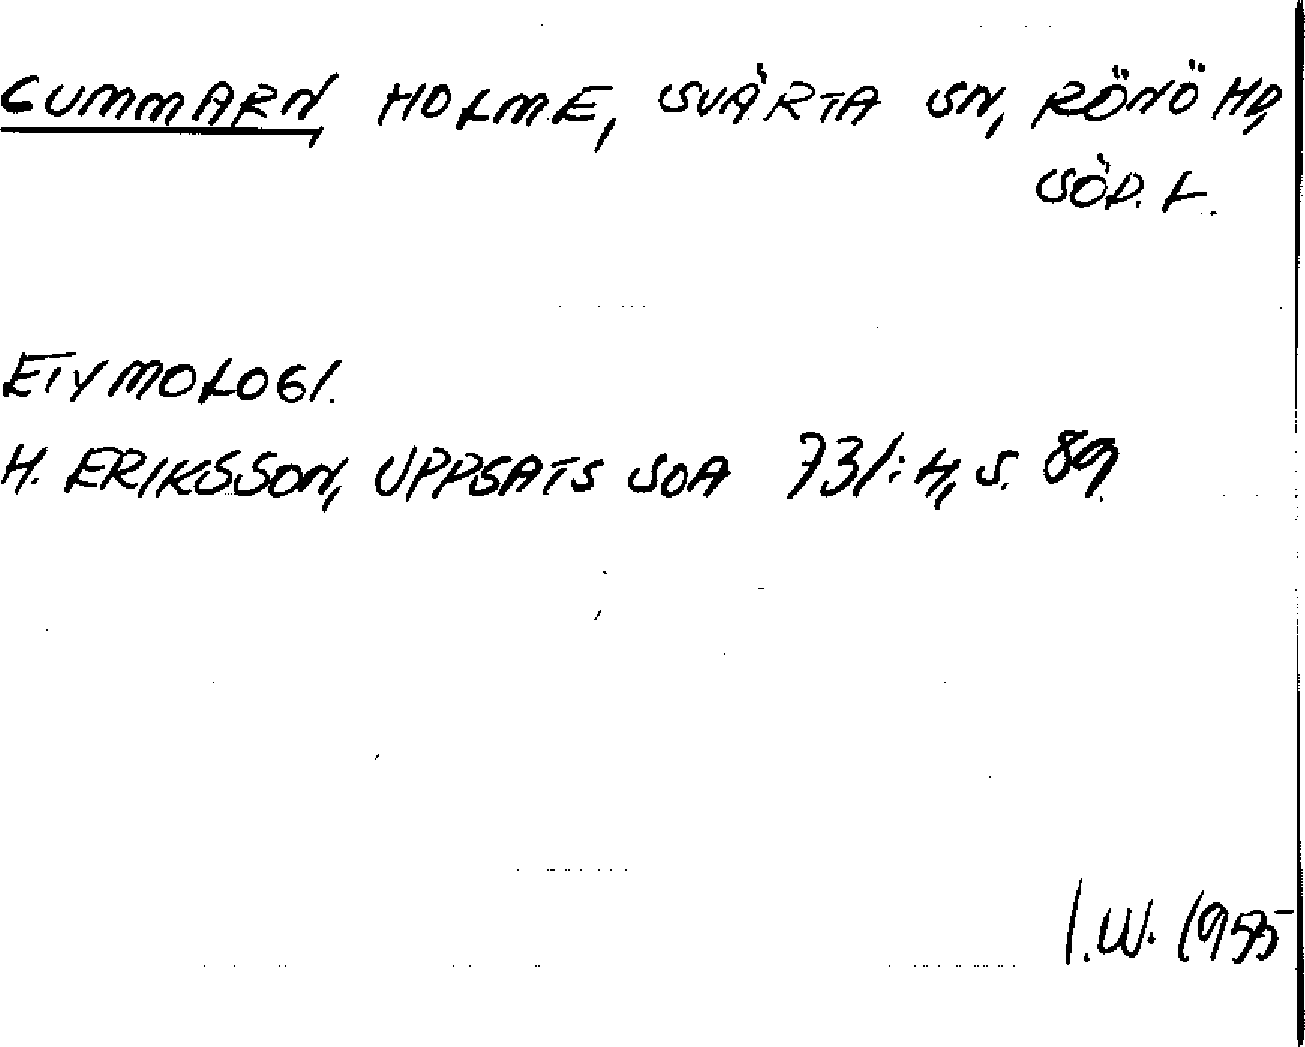 CUMMARN, HOLME, SVÄRTA SN, RÖNÖ HD,
SÖD. L.
ETYMOLOGI.
H. ERIKSSON, UPPSATS SOA 731:4, S. 89.
I.W. 1955